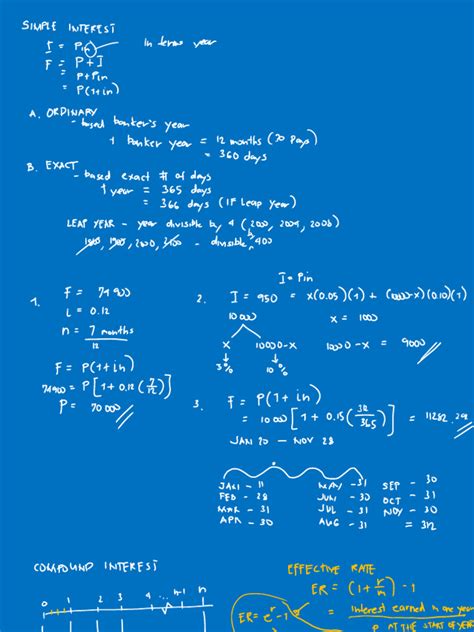 SIMPLE INTEREST
I = Pin in terms year
F = P + I
= P + Pin
= P(1+in)
A. ORDINARY
- based banker's year
1 banker year = 12 months (30 Days)
= 360 days
B. EXACT
- based exact # of days
1 year = 365 days
= 366 days (IF Leap year)
LEAP YEAR - year divisible by 4 (2000, 2004, 2008)
1800, 1900, 2000, 2100 - divisible by 400
I = Pin
1. F = 74900
i = 0.12
n = 7 months
12
F = P(1+in)
74900 = P[1+0.12(7/12)]
P = 70000
2. I = 950 = x(0.05)(1) + (10000-x)(0.10)(1)
10000
x = 1000
x 10000-x
10000-x = 9000
10%
3. F = P(1+in)
= 10000[1 + 0.15(312/365)] = 11282.
JAN 20 - NOV 28
JAN - 11
FEB - 28
MAR - 31
APR - 30
MAY - 31
JUN - 30
JUL - 31
AUG - 31
SEP - 30
OCT - 31
NOV - 30
= 312
COMPOUND INTEREST
0 1 2 3 4 ... n-1 n
EFFECTIVE RATE
ER = (1 + r/m) - 1
ER = e^r - 1
= interest earned in one year
P AT THE START OF YEAR